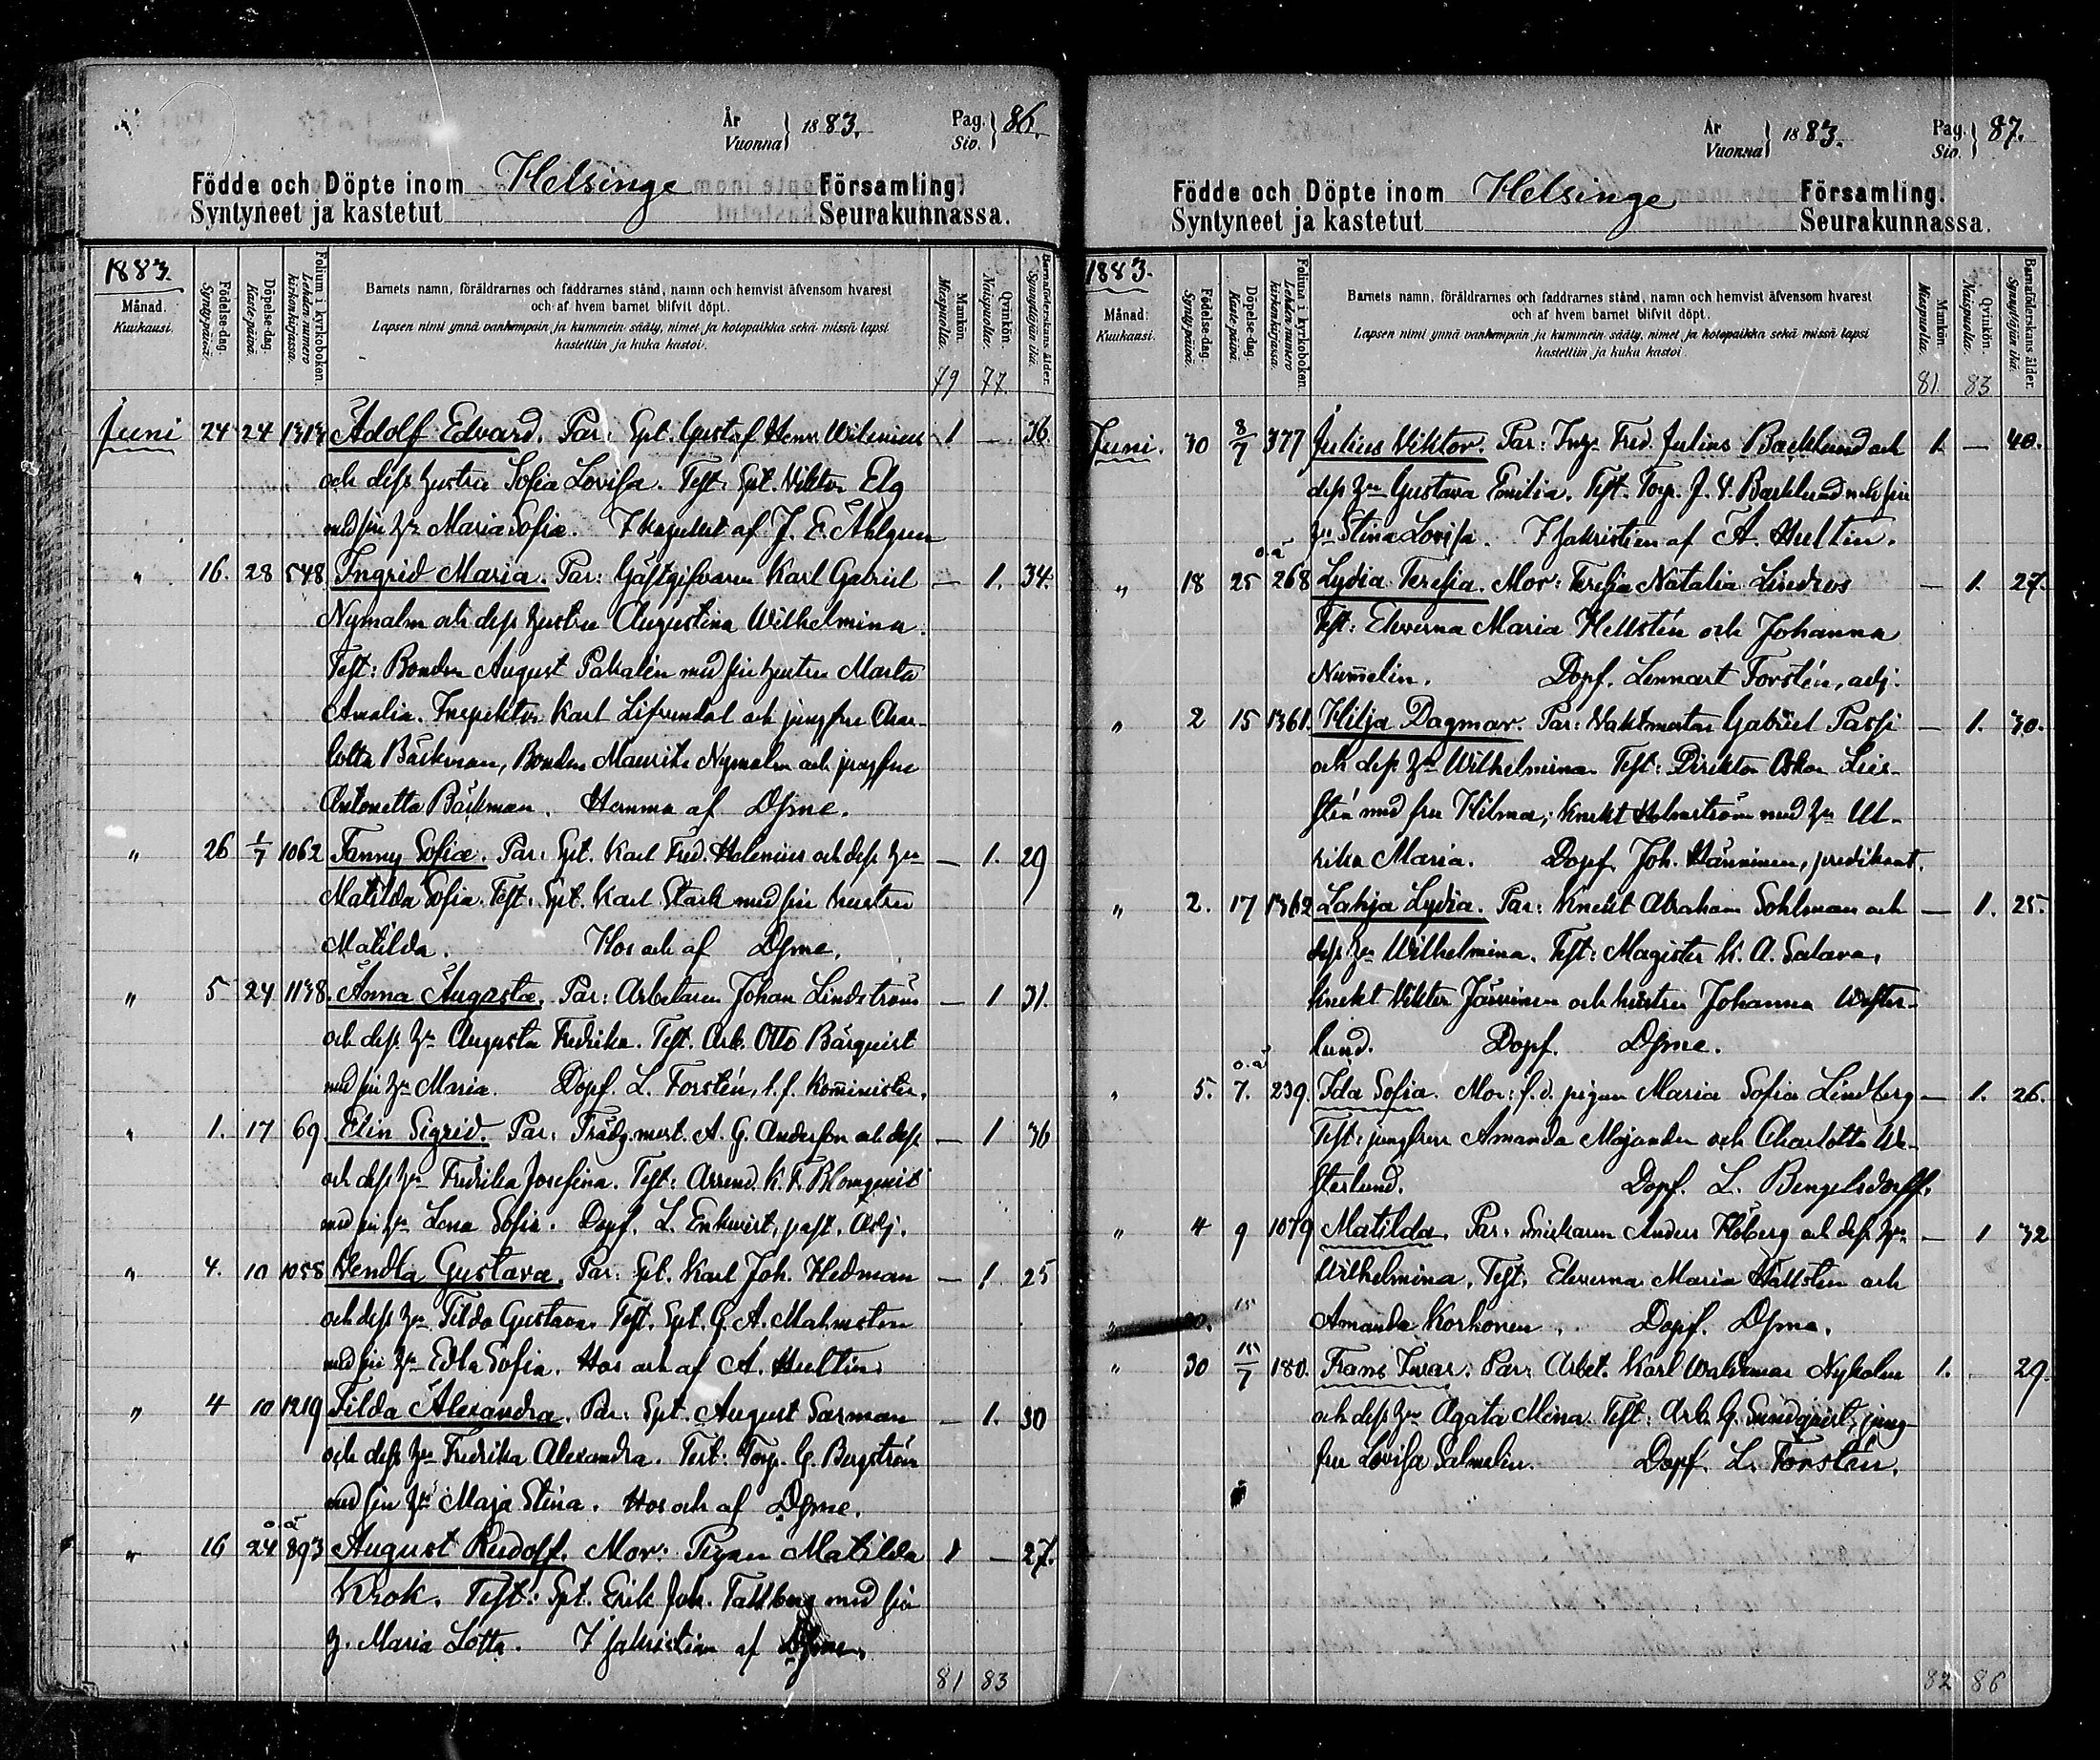 År
Vuonna } 1883. Pag. Siv. } 86.
Födde och Döpte inom Helsinge Församling.
Syntyneet ja kastetut Seurakunnassa.
1883.
Månad.
Kuukausi.
Födelse-dag.
Synty-päivä.
Döpelse-dag.
Kaste-päivä.
Folium i kyrkoboken.
Lehden numero kirkonkirjassa.
Barnets namn, föräldrarnes och faddrarnes stånd, namn och hemvist äfvensom hvarest
och af hvem barnet blifvit döpt.
Lapsen nimi ynnä vanhempain ja kummein sääty, nimet ja kotopaikka sekä missä lapsi
kastettiin ja kuka kastoi.
Mankön.
Miespuolia.
Qvinkön.
Naispuolia.
Barnaföderskans ålder.
Synnyttäjän ikä.
79 77.
Juni 24 24 1313 Adolf Edvard. Par: Spt. Gustaf Henr. Wilenius 1 — 36.
och dess hustru Sofia Lovisa. Test: Spt. Viktor Elg
med sin h:u Maria Sofia. I kapellet af J. E. Ahlgren
" 16. 28 548 Ingrid Maria. Par: Gästgifvaren Karl Gabriel — 1. 34.
Nymalm och dess hustru Augustina Wilhelmina.
Test: Bonden August Pakalén med sin hustru Marta
Amalia. Inspektor Karl Lifvendal och jungfru Char-
lotta Bäckman, Bonden Mauritz Nymalm och jungfru
Antonetta Bäckman. Hemma af Dsme.
" 26 1/7 1062 Fanny Sofia. Par: Spt. Karl Fred. Helenius och dess h:u — 1. 29
Matilda Sofia. Test: Spt. Karl Stark med sin hustru
Matilda. Hos och af Dsme.
" 5 24 1138. Anna Augusta. Par: Arbetaren Johan Lindström — 1 31.
och dess h:u Augusta Fredrika. Test. Arb. Otto Bärquist
med sin h:u Maria. Döpf. L. Forstén, t. f. Komminister.
" 1. 17 69 Elin Sigrid. Par: Trädg.mest. A. G. Andersson och dess — 1 36
och dess h:u Fredrika Josefina. Test: Arrend. K. F. Blomqvist
med sin h:u Lena Sofia. Döpf. L. Enkvist, past. Adj.
" 4. 10 1058 Vendla Gustava. Par: Spt. Karl Joh. Hedman — 1. 25
och dess h:u Tilda Gustava. Test. Spt. G. A. Malmsten
med sin h:u Edla Sofia. Hos och af A. Hultin.
" 4 10 1219 Tilda Alexandra. Par: Spt. August Sarman — 1. 30
och dess h:u Fredrika Alexandra. Test: Torp. G. Bergström
med sin h:u Maja Stina. Hos och af Dsme.
o. ä
" 16 24 893 August Rudolf. Mor: Pigan Matilda 1 — 27.
Krok. Test: Spt. Erik Joh. Tallberg med sin
h. Maria Lotta. I sakristian af Dsme.
81 83
År
Vuonna } 1883. Pag. Siv. } 87.
Födde och Döpte inom Helsinge Församling.
Syntyneet ja kastetut Seurakunnassa.
1883.
Månad.
Kuukausi.
Födelse-dag.
Synty-päivä.
Döpelse-dag.
Kaste-päivä.
Folium i kyrkoboken.
Lehden numero kirkonkirjassa.
Barnets namn, föräldrarnes och faddrarnes stånd, namn och hemvist äfvensom hvarest
och af hvem barnet blifvit döpt.
Lapsen nimi ynnä vanhempain ja kummein sääty, nimet ja kotopaikka sekä missä lapsi
kastettiin ja kuka kastoi.
Mankön.
Miespuolia.
Qvinkön.
Naispuolia.
Barnaföderskans ålder.
Synnyttäjän ikä.
81. 83
Juni. 30 8/7 377 Julius Viktor. Par: Fred. Julius Backlund och 1. — 40.
dess h:u Gustava Emilia. Test. Torp. J. V. Backlund och sin
h:u Stina Lovisa. I sakristian af A. Hultin.
o. ä
" 18 25 268 Lydia Teresia. Mor: Teresia Natalia Lindros — 1. 27.
Test: Eleverna Maria Hellstén och Johanna
Nummelin. Döpf. Lennart Forstén, adj.
" 2 15 1361. Hilja Dagmar. Par: Vaktmästar Gabriel Passi — 1. 30.
och dess h:u Wilhelmina. Test: Direktor Oskar
stén med fru Hilma; Knekt Holmström med h:u Ul-
rika Maria. Döpf. Joh. Hänninen, predikant.
" 2. 17 1362 Lahja Lydia. Par: Knekt Abraham Sohlman och — 1. 25.
dess h:u Wilhelmina. Test: Magister K. A. Salava,
knekt Viktor Järvinen och hustru Johanna Wester-
lund. Döpf. Dsme.
o. ä
" 5. 7. 239. Ida Sofia. Mor: f. d. pigan Maria Sofia Lindberg — 1. 26.
Test: jungfrur Amanda Majander och Charlotta We-
sterlund. Döpf. L. Bengelsdorff.
" 4 9 1079 Matilda. Par. Snickaren Anders Höberg och dess h:u — 1 32
Wilhelmina. Test. Eleverna Maria Hällsten och
Amanda Korhonen. Döpf. Dsme.
" 30. 15
" 30 15/7 180. Frans Ivar. Par. Arbet. Karl Waldemar Nyholm 1. 29.
och dess h:u Agata Mina. Test: Arb. G. Sundqvist, jung-
fru Lovisa Salmelin. Döpf. L. Forstén.
82 86